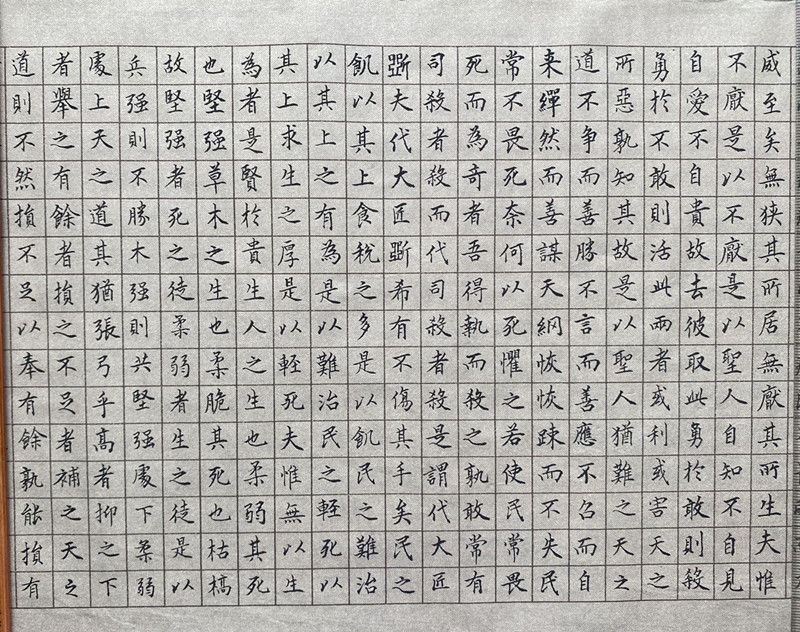 威至矣無狭其所居無厭其所生夫惟
不厭是以不厭是以聖人自知不自見
自愛不自貴故去彼取此勇於敢則殺
勇於不敢則活此兩者或利或害天之
所惡孰知其故是以聖人猶難之天之
道不争而善勝不言而善應不召而自
来繟然而善謀天網恢恢踈而不失民
常不畏死奈何以死懼之若使民常畏
死而為奇者吾得執而殺之孰敢常有
司殺者殺而代司殺者殺是謂代大匠
斲夫代大匠斲希有不傷其手矣民之
飢以其上食稅之多是以飢民之難治
以其上之有為是以難治民之輕死以
其上求生之厚是以輕死夫惟無以生
為者是賢於貴生人之生也柔弱其死
也堅强草木之生也柔脆其死也枯槁
故堅强者死之徒柔弱者生之徒是以
兵强則不勝木强則共堅强處下柔弱
處上天之道其猶張弓乎高者抑之下
者舉之有餘者損之不足者補之天之
道則不然損不足以奉有餘孰能損有